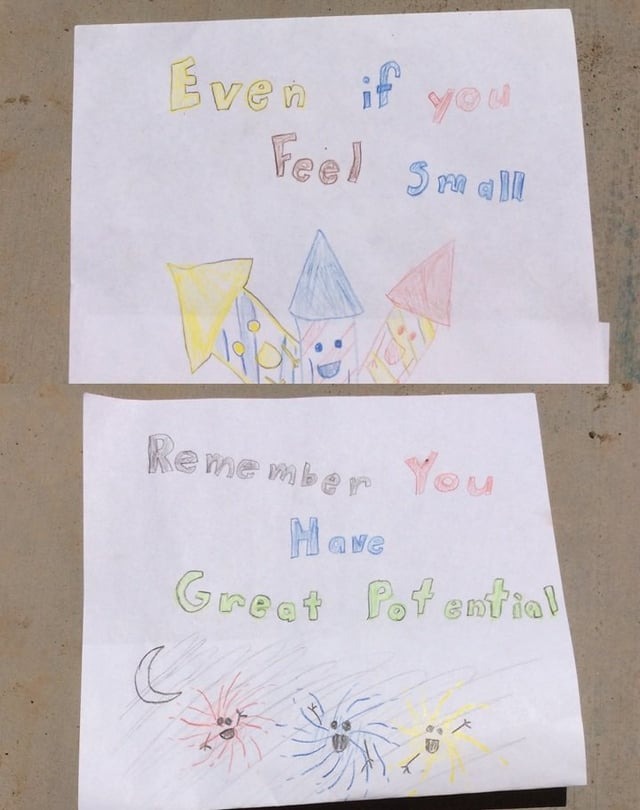 Even if you
Feel small
Remember You
Have
Great Potential